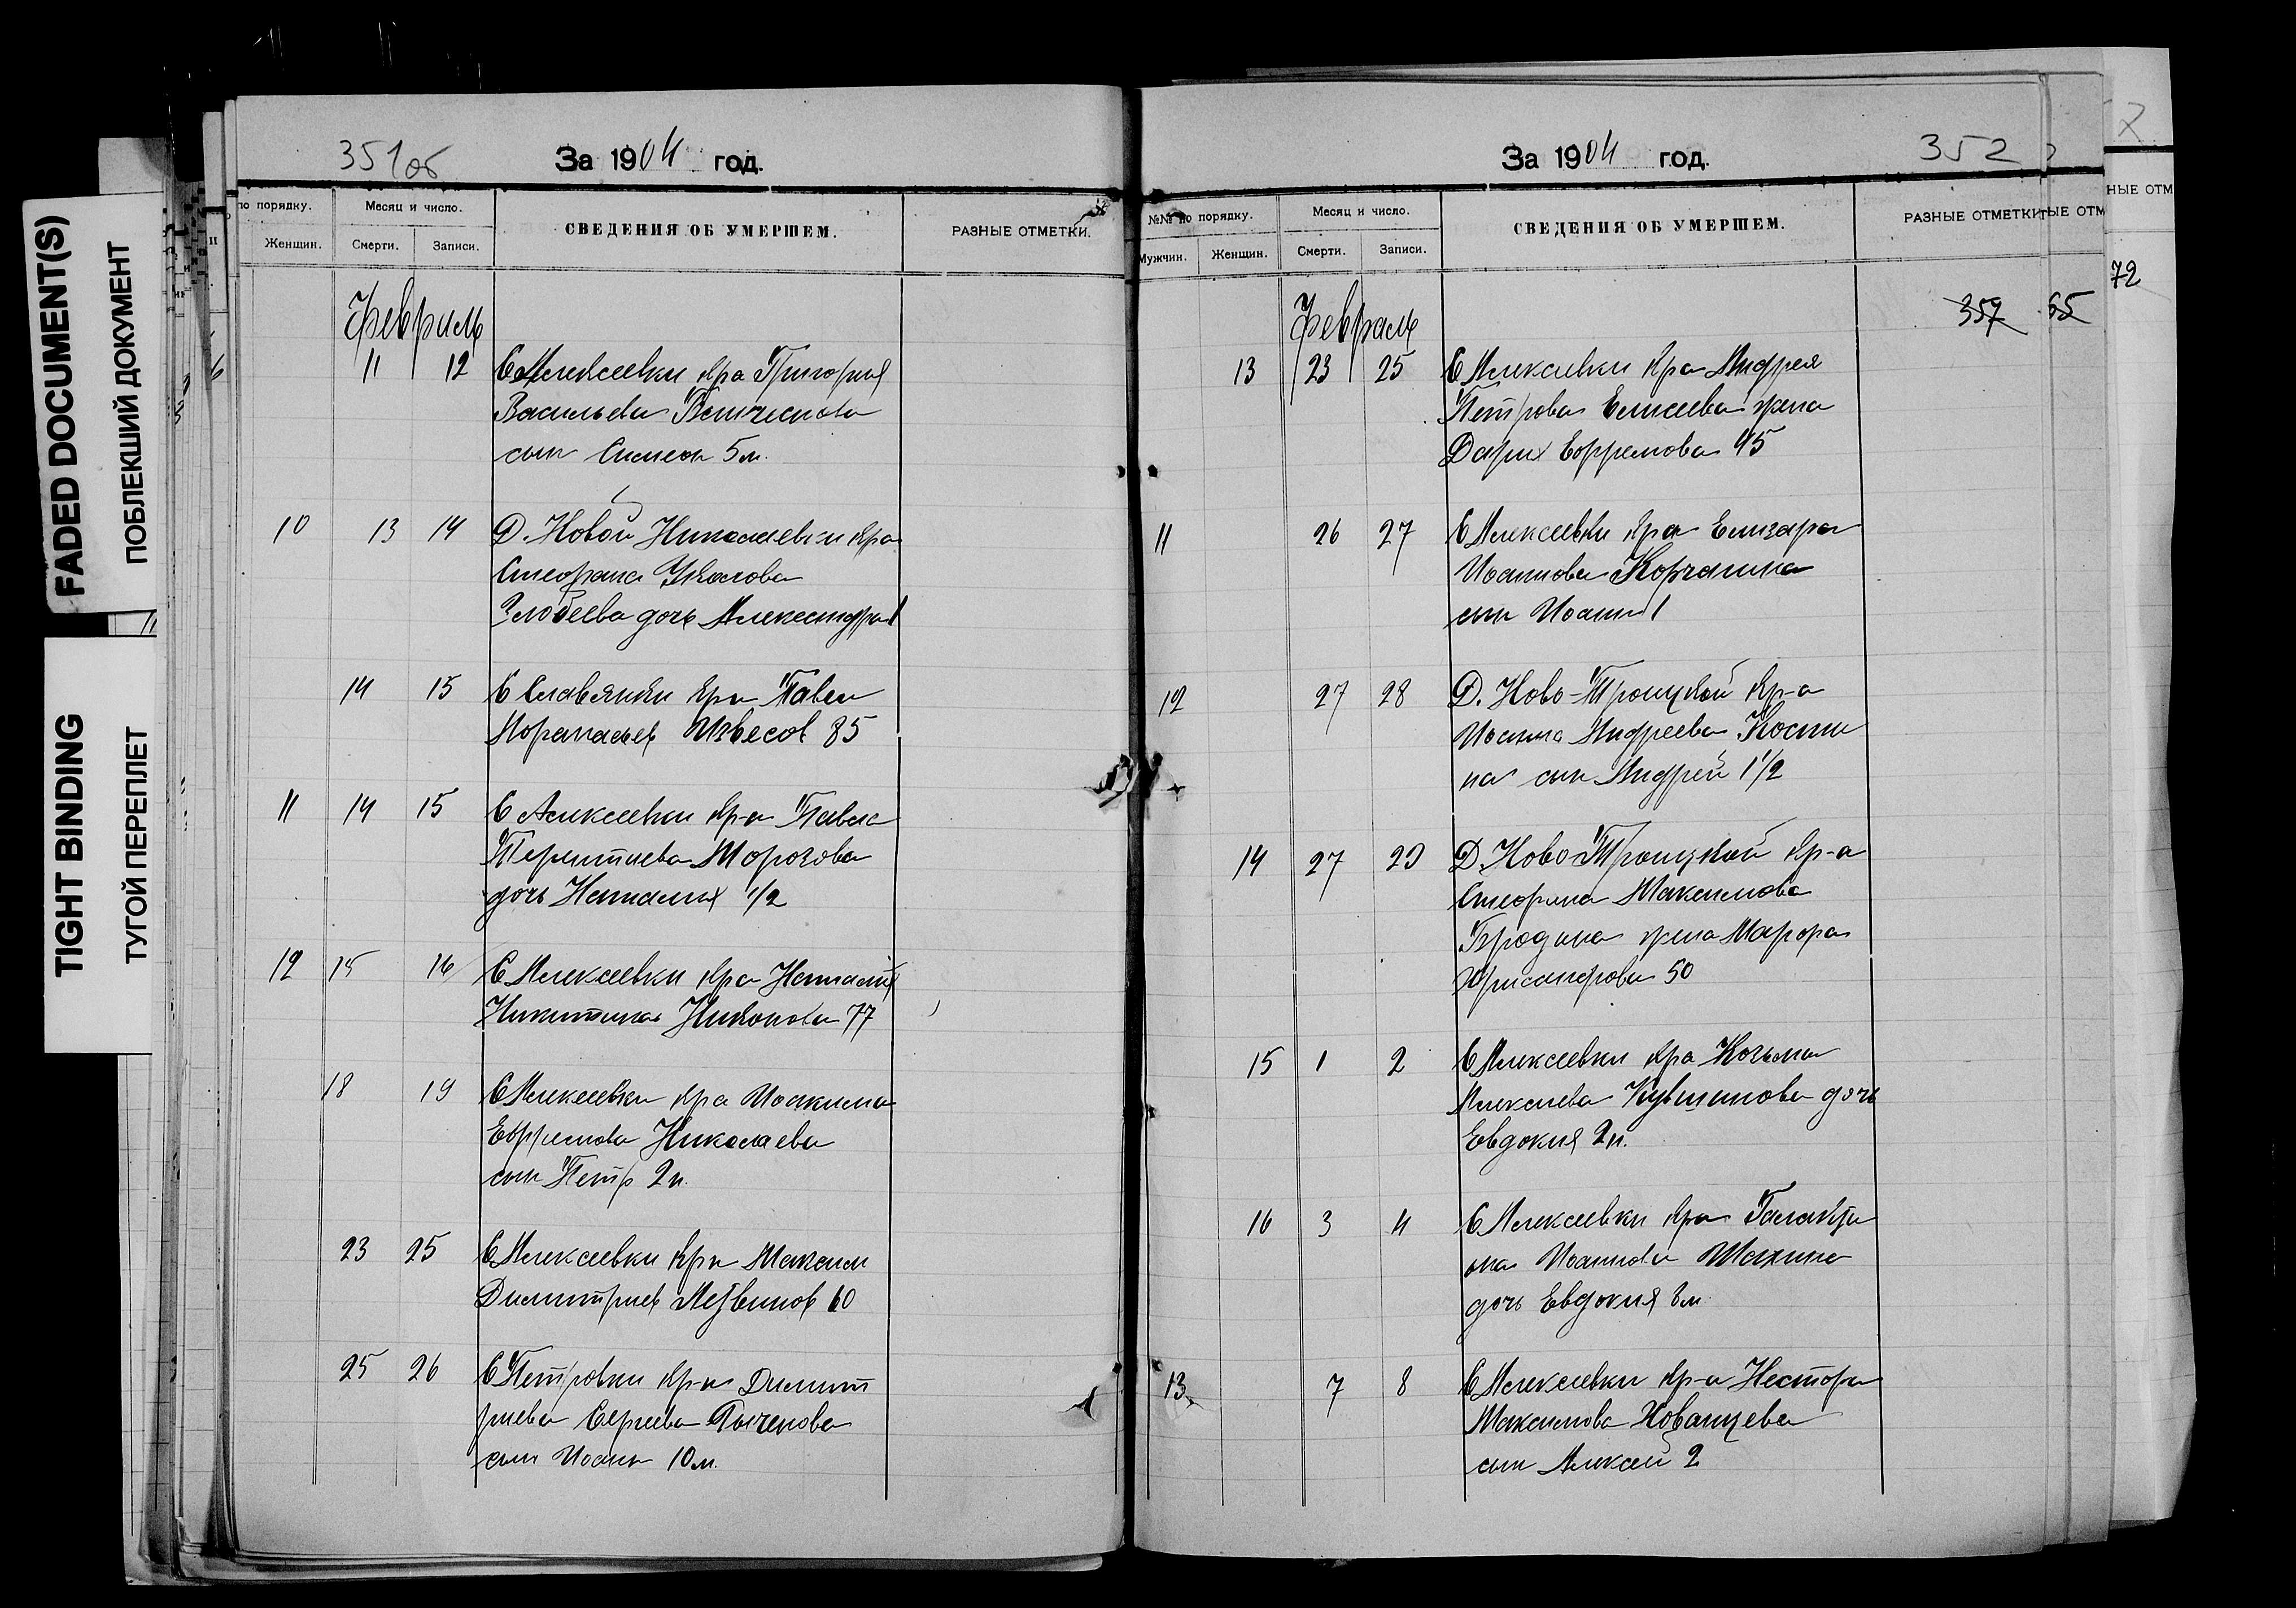 FADED DOCUMENT(S)
ПОБЛЕКШИЙ ДОКУМЕНТ
TIGHT BINDING
ТУГОЙ ПЕРЕПЛЕТ
351об
За 1904 год.
по порядку.
Месяц и число.
Женщин.
Смерти.
Записи.
СВЕДЕНИЯ ОБ УМЕРШЕМ.
РАЗНЫЕ ОТМЕТКИ.
Февраль
11 12 С Алексеевки кр-а Григория
Васильева
сын Симеон 5 м.
10 13 14 Д. Новой Николаевки кр-а
Стефана
Злобеева дочь Александра 1
14 15 С Славянки кр-н Павел
Афанасьев Извесов 85
11 14 15 С Алексеевки кр-а Павла
Терентиева Морозова
дочь Наталия 1/2
12 15 16 С Алексеевки кр-а Наталия
Никитина Никонова 77
18 19 С Алексеевки кр-а Иоакима
Ефремова Николаева
сын Петр 2 н.
23 25 С Алексеевки кр-н Максим
Димитриев Литвинов 60
25 26 С Петровки кр-на Димит
риева Сергеева
сын Иоанн 10 м.
За 1904 год.
352
№№ по порядку.
Месяц и число.
Мужчин.
Женщин.
Смерти.
Записи.
СВЕДЕНИЯ ОБ УМЕРШЕМ.
РАЗНЫЕ ОТМЕТКИ
ЫЕ ОТМ
НЫЕ ОТМ
72
357 65
Февраль
13 23 25 С Алексеевки кр-а Андрея
Петрова Елисеева жена
Дария Ефремова 45
11 26 27 С Алексеевки кр-а Елизара
Иоаннова Корчагина
сын Иоанн 1
12 27 28 Д. Ново-Троицкой кр-а
Иоанна Андреева Кости
на сын Андрей 1 1/2
14 27 29 Д. Ново-Троицкой кр-а
Стефана Максимова
Бродина жена Марфа
Хрисанфова 50
15 1 2 С Алексеевки кр-а Козьма
Алексеева Кувшинова дочь
Евдокия 2 н.
16 3 4 С Алексеевки кр-а Галакти
она Иоаннова Шахина
дочь Евдокия 8 м
13 7 8 С Алексеевки кр-а Нестора
Максимова Хованцева
сын Алексей 2